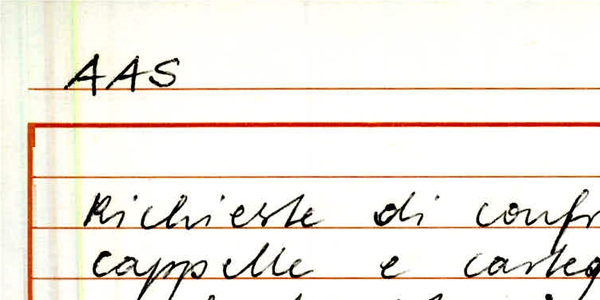 AAS
Richieste di confr
cappelle e carteg